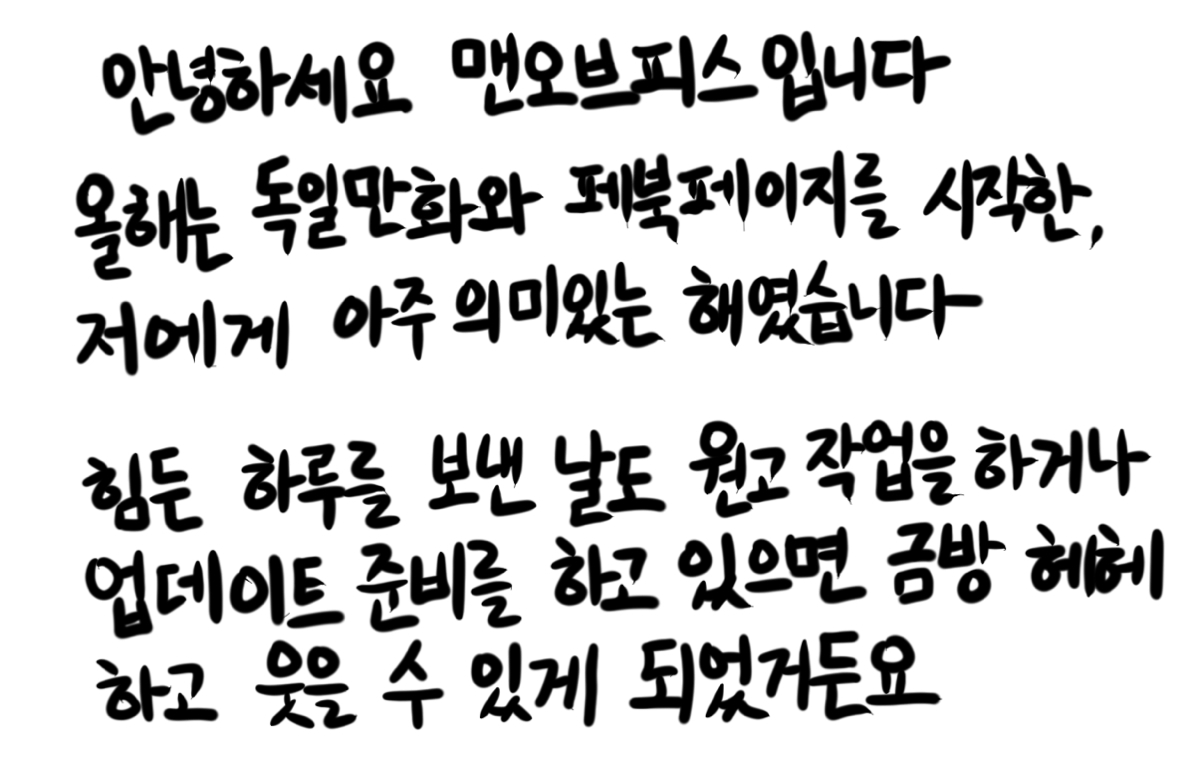 안녕하세요 맨오브피스입니다
올해는 독일만화와 페북페이지를 시작한,
저에게 아주 의미있는 해였습니다
힘든 하루를 보낸 날도 원고작업을 하거나
업데이트 준비를 하고 있으면 금방 헤헤
하고 웃을 수 있게 되었거든요